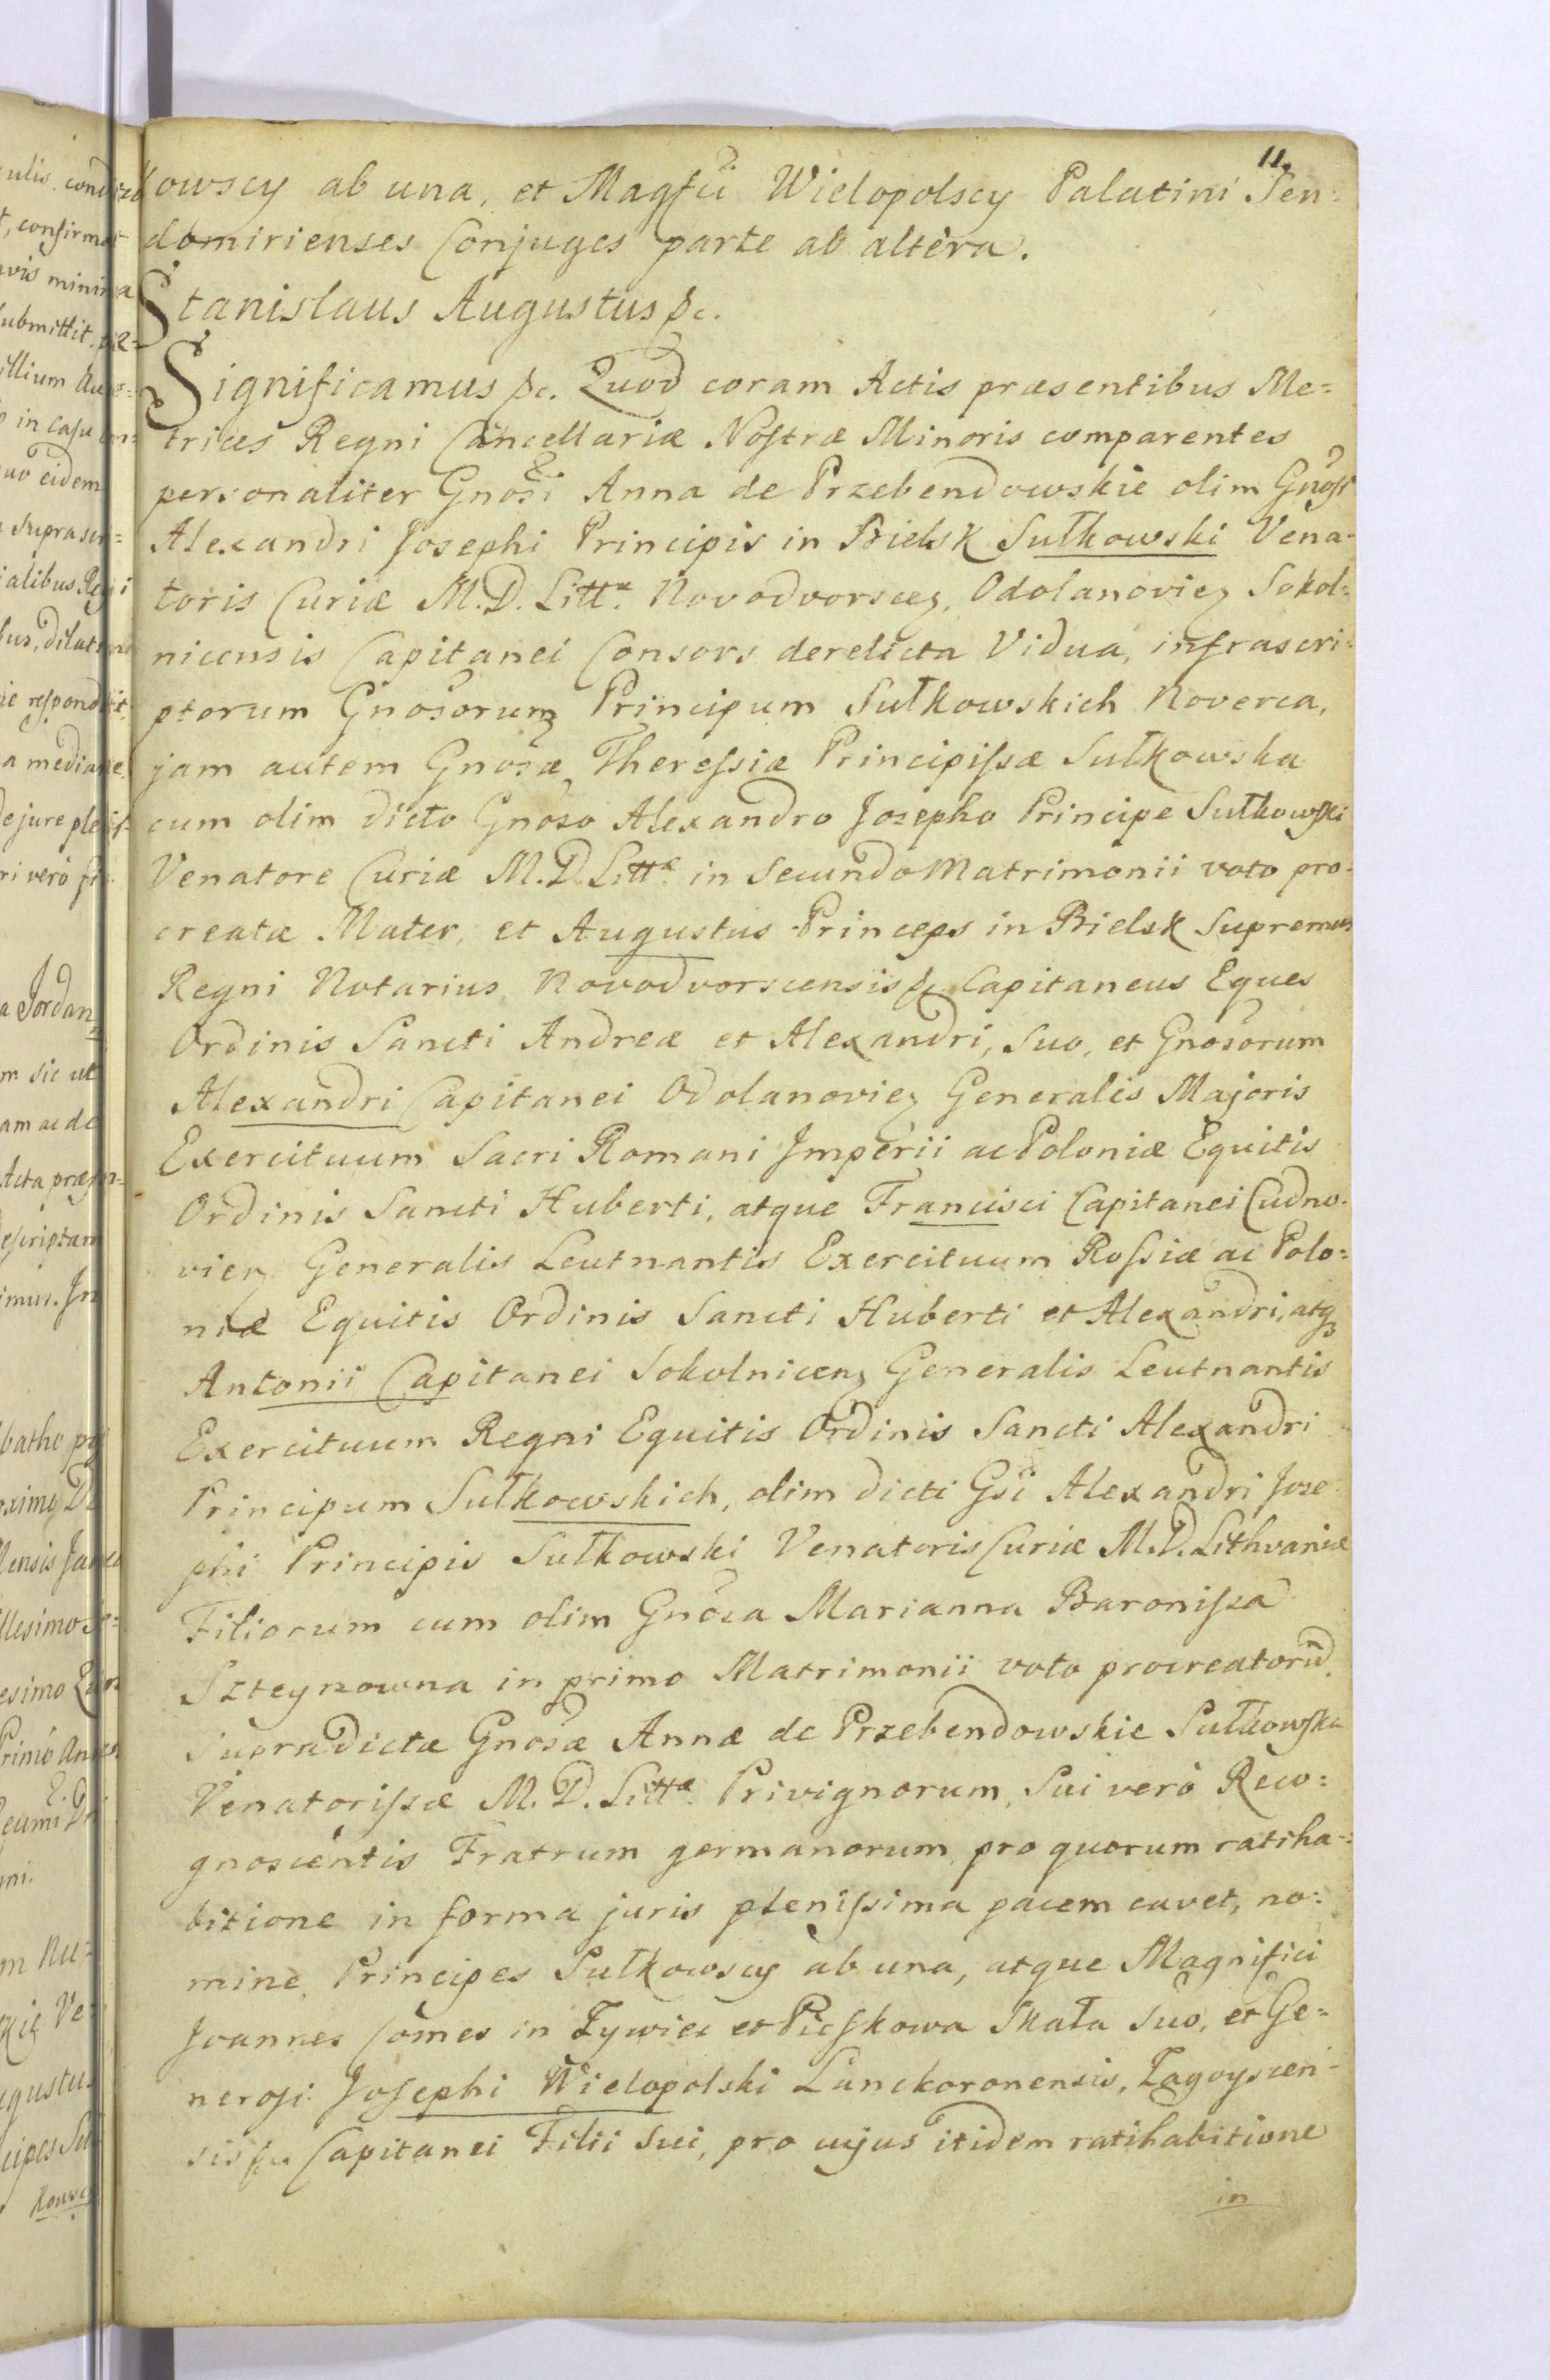 11.
kowscy ab una, et Magfci Wielopolscy Palatini Sen=
domirienses Conjuges parte ab altera.
Stanislaus Augustus &c.
Significamus &c. Quod coram Actis præsentibus Me=
trices Regni Cancellariæ Nostræ Minoris comparentes
personaliter Gnosi Anna de Przebendowskie olim Gnosi
Alexandri Josephi Principis in Bielsk Sułkowski Vena-
toris Curiæ M.D. Littæ. Novodvorscen, Odolanovien Sokol=
nicensis Capitanei Consors derelicta Vidua, infrascri=
ptorum Gnosorum Principum Sułkowskich Noverca,
jam autem Gnosæ Theressiæ Principissæ Sułkowska
cum olim dicto Gnoso Alexandro Jozepho Principe Sułkowski
Venatore Curiæ M.D. Littæ. in secundo Matrimonii voto pro-
creatæ Mater, et Augustus Princeps in Bielsk Supremus
Regni Notarius, Novodvorscensis &c Capitaneus Eques
Ordinis Sancti Andreæ et Alexandri, suo, et Gnosorum
Alexandri Capitanei Odolanovien Generalis Majoris
Exercituum Sacri Romani Imperii ac Poloniæ Equitis
Ordinis Sancti Huberti, atque Francisci Capitanei Cudno-
vien Generalis Leutnantis Exercituum Rossiæ ac Polo=
niæ Equitis Ordinis Sancti Huberti et Alexandri, atq
Antonii Capitanei Sokolnicen Generalis Leutnantis
Exercituum Regni Equitis Ordinis Sancti Alexandri
Principum Sułkowskich, olim dicti Gsi Alexandri Joze
phi Principis Sułkowski Venatoris Curiæ M.D. Lithvaniæ
Filiorum cum olim Gnosa Marianna Baronissa
Szteynowna in primo Matrimonii voto procreatorū
supradictæ Gnosæ Annæ de Przebendowskie Sułkowska
Venatorissæ M.D. Littæ. Privignorum, sui verò Reco=
gnoscentis Fratrum germanorum, pro quorum ratiha=
bitione in forma juris plenissima pacem cavet, no=
mine, Principes Sułkowscy ab una, atque Magnifici
Joannes Comes in Zywiec et Pieskowa Skała suo, et Ge=
nerosi Josephi Wielopolski Lanckoronensis, Zagoyscen-
sis &c Capitanei Filii sui, pro cujus itidem ratihabitione
in